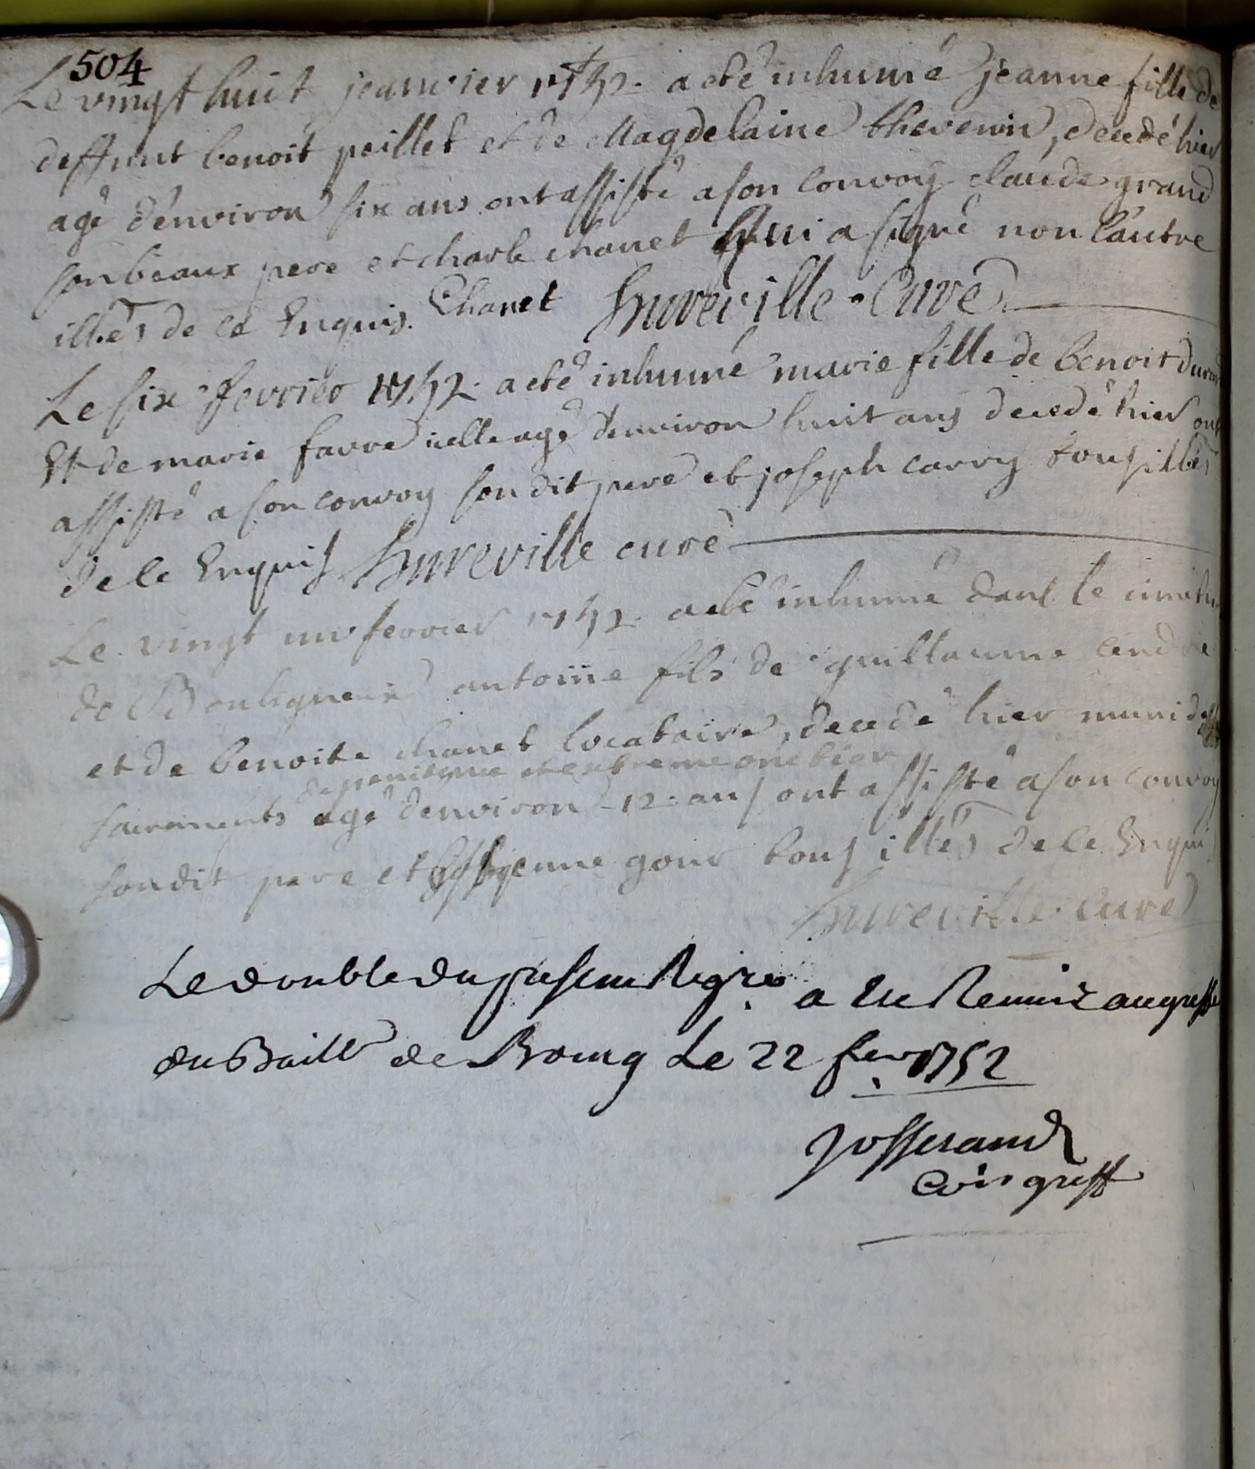 504
Le vingt huit jeanvier 1752. a eté inhumé jeanne fille de
deffunt benoit peillet et de Magdelaine thevenin, decedé hier
agé d'environ six ans ont assisté a son convoy claude grand
son beaux pere et charle chanet qui a signé non l'autre
illēs de ce Enquis. Chanet hureville curé
Le six fevrier 1752. a eté inhumé marie fille de benoit
Et de marie favre icelle agé d'environ huit ans decedé hier ont
assisté a son convoy son dit pere et joseph carry tous illēs
de ce Enquis hureville curé
Le vingt un fevrier 1752. a eté inhumé dans le
de Bouligneux antoine fils de guillaume
et de benoite chanet locataire, decedé hier muni des
de penitence et extreme onction
sacrements agé d'environ 12. ans ont assisté a son convoy
son dit pere et estienne gour tous illēs de ce Enquis
hureville curé
Le double du present Regre a ete Remis au greffe
du Baill de Bourg Le 22 fev 1752
Josserand
Com greff